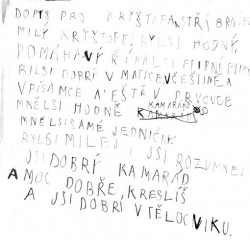 DOPIS PRO KRYŠTOFA STŘÍBRNÉHO
MILÝ KRYŠTOFE BYL SI HODNÝ,
POMÁHAVÝ ŘÍKALSI FTIPNĚ
BILSI DOBRÍ V MATICE V ČEŠTINĚ A
VPÍSAMCE A EŠTĚ V PRVOUCE
MNĚLSI HODNĚ KAMARÁDŮ
MNĚLSI SAMÉ JEDNIČKI
BYLSI MILEJ I JSI ROZUMNEJ
JSI DOBRÍ KAMARÁD
A MOC DOBŘE KRESLÍŠ
A JSI DOBRÍ V TĚLOCVIKU.